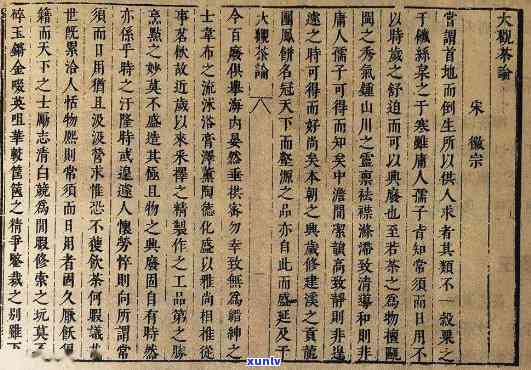 大觀茶論
宋 徽宗
嘗謂首地而倒生所以供人求者其類不一穀粟之
于饑絲枲之于寒雖庸人孺子皆知常須而日用不
以時歲之舒迫而可以興廢也至若茶之為物擅甌
閩之秀氣鍾山川之靈禀袪襟滌滯致清導和則非
庸人孺子可得而知矣中澹間潔韻高致靜則非遑
遽之時可得而好尚矣本朝之興歲修建溪之貢龍
團鳳餅名冠天下而壑源之品亦自此而盛延及于
大觀茶論
今百廢俱舉海内晏然垂拱密勿幸致無為縉紳之
士韋布之流沐浴膏澤薰陶德化盛以雅尚相推從
事茗飲故近歲以來采擇之精製作之工品第之勝
烹點之妙莫不盛造其極且物之興廢固自有時然
亦係乎時之汙隆時或遑遽人懷勞悴則向所謂常
須而日用猶且汲汲營求惟恐不獲飲茶何暇議也
世既累洽人恬物熙則常須而日用者固久厭飫狼
籍而天下之士勵志清白競為閒暇修索之玩莫不
碎玉鏘金啜英咀華較筐篋之精爭鑒裁之别雖下
xunlv